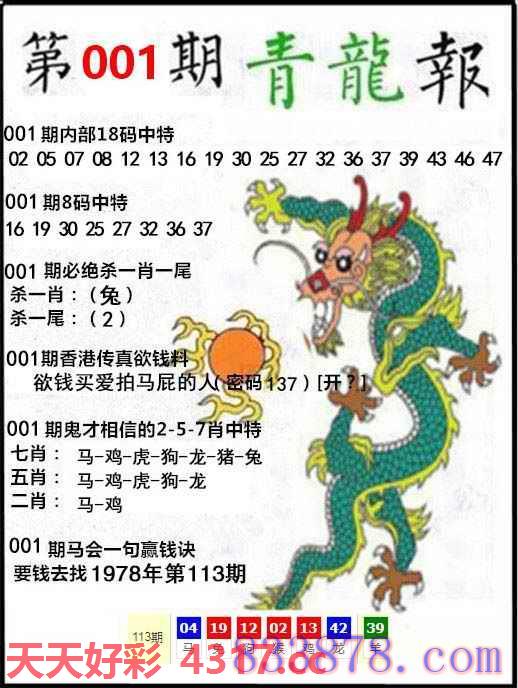 第001期青龍報
001期内部18码中特
02 05 07 08 12 13 16 19 30 25 27 32 36 37 39 43 46 47
001期8码中特
16 19 30 25 27 32 36 37
001期必绝杀一肖一尾
杀一肖：(兔)
杀一尾：(2)
001期香港传真欲钱料
欲钱买爱拍马屁的人(密码137)[开？]
001期鬼才相信的2-5-7肖中特
七肖：马-鸡-虎-狗-龙-猪-兔
五肖：马-鸡-虎-狗-龙
二肖：马-鸡
001期马会一句赢钱诀
要钱去找1978年第113期
113期 04 19 12 02 13 42 39
马 兔 狗 猴 鸡 龙 羊
天天好彩 4317.cc